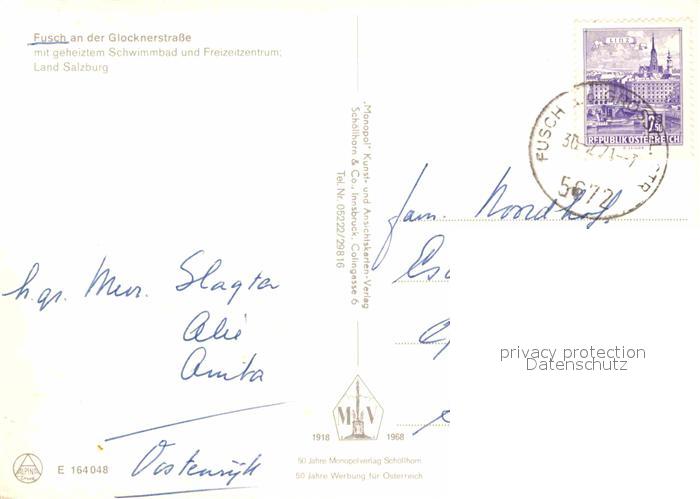 Fusch an der Glocknerstraße
mit geheiztem Schwimmbad und Freizeitzentrum;
Land Salzburg
LINZ
REPUBLIK ÖSTERREICH
FUSCH
5672
„Monopol" Kunst- und Ansichtskarten-Verlag
Schöllhorn & Co., Innsbruck, Colingasse 6
Tel. Nr. 05222/29816
fam. Noordhof
h.gr. Mevr. Slagter
Alie
Anita
Oostenrijk
privacy protection
Datenschutz
M V
1918 1968
50 Jahre Monopolverlag Schöllhorn
50 Jahre Werbung für Österreich
ALPINA
E 164048